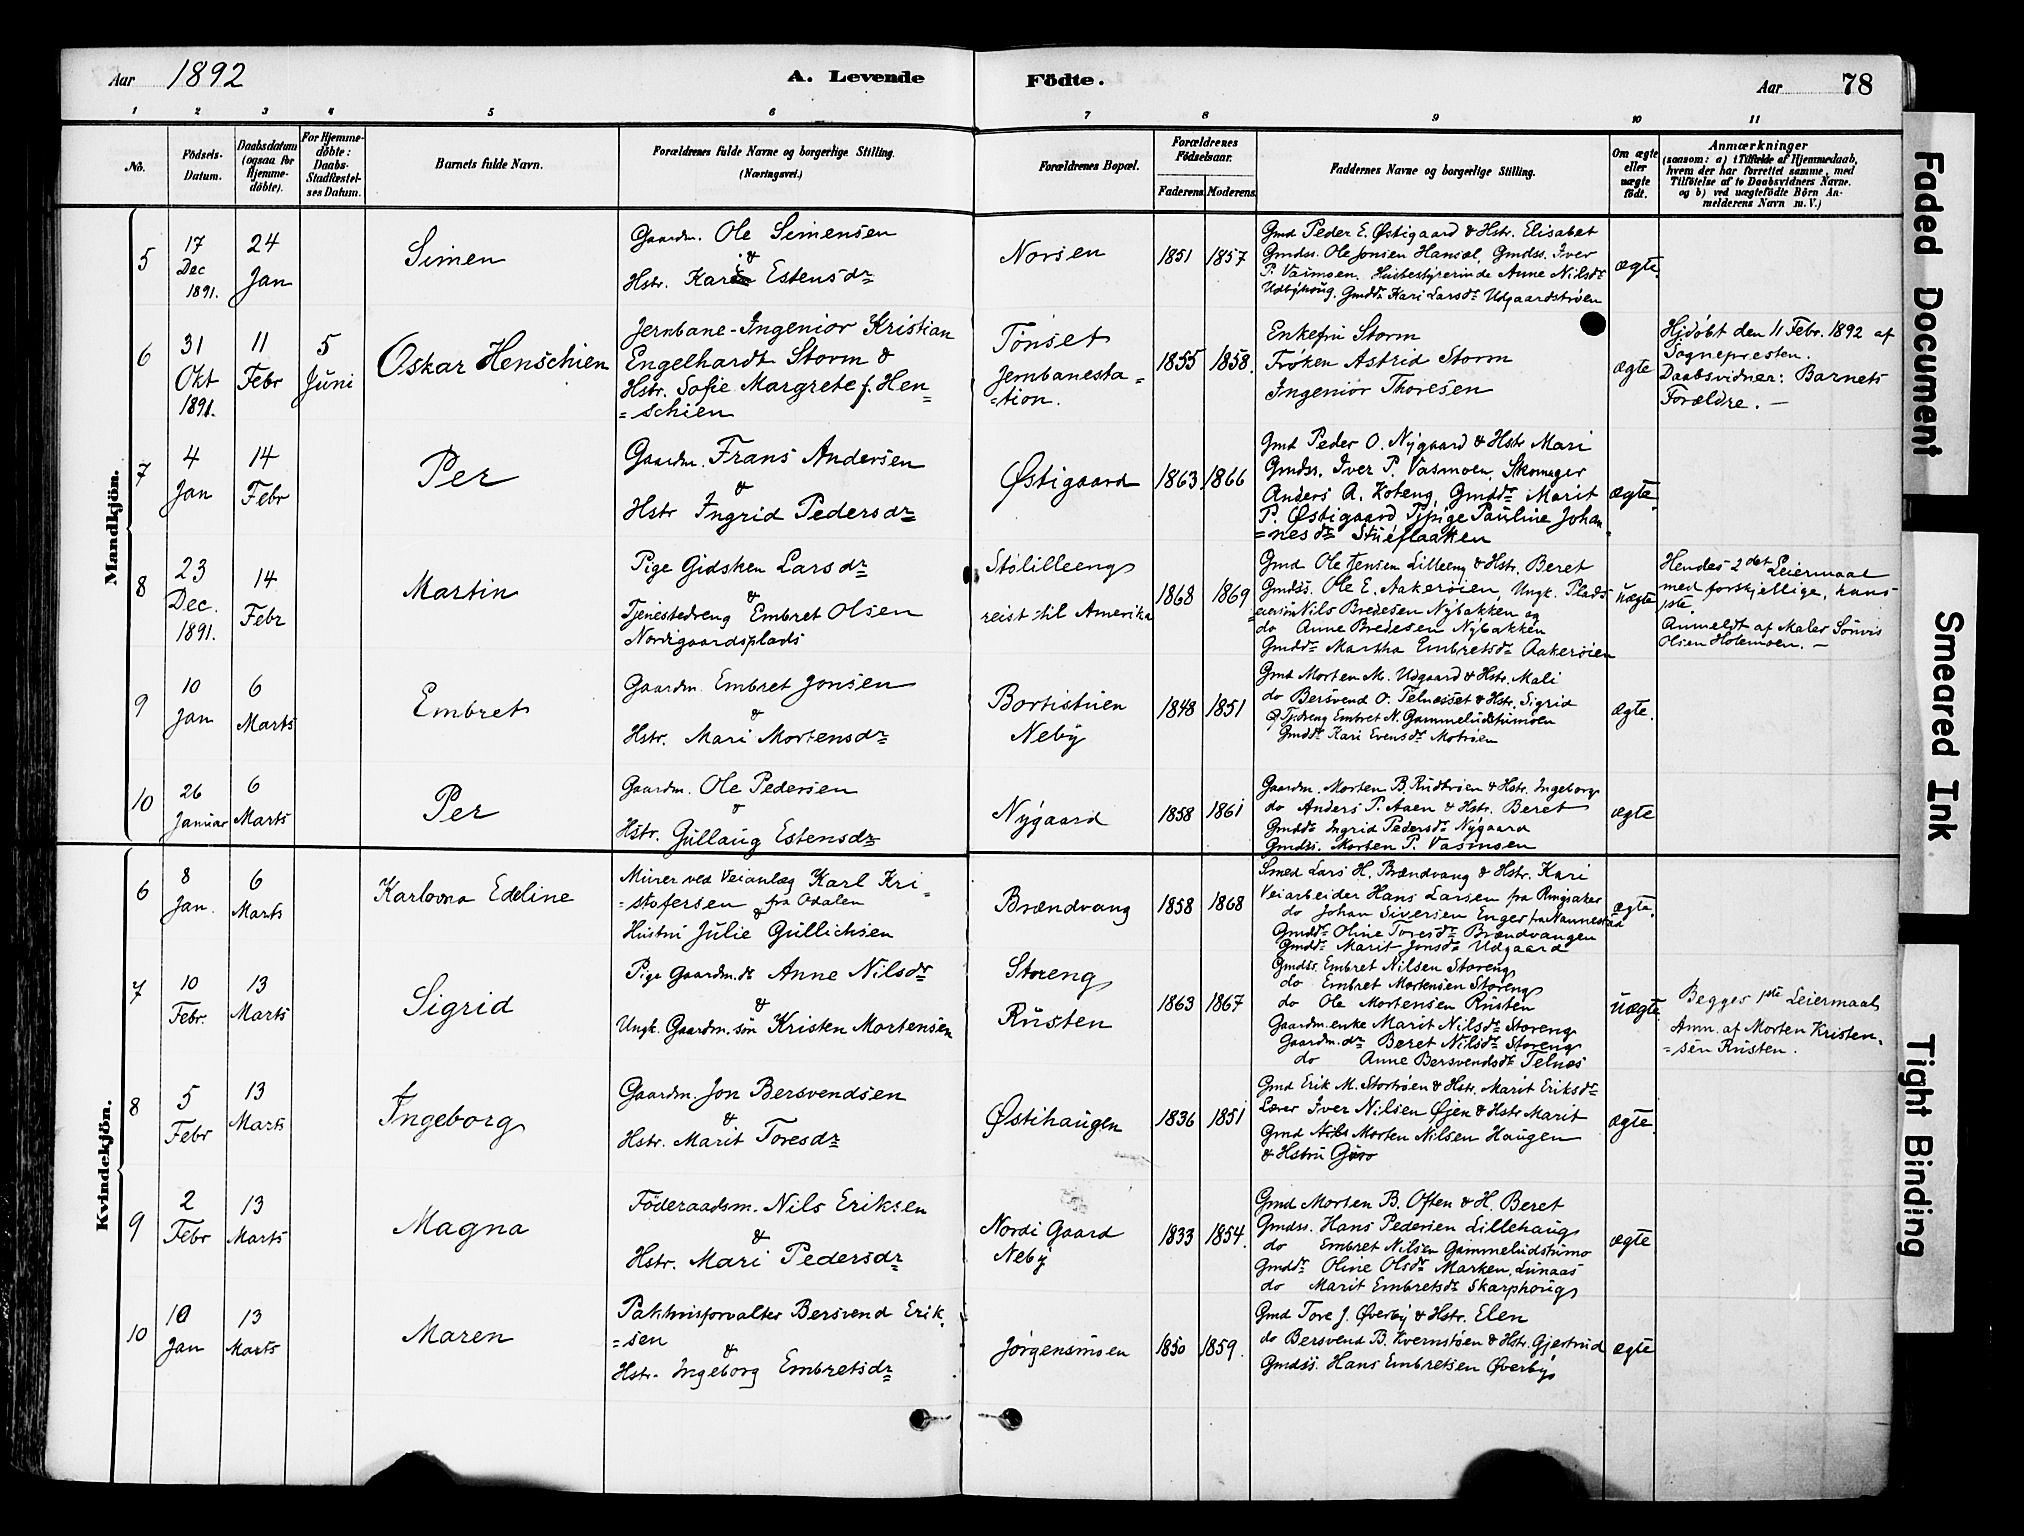 Aar 1892 A. Levende Födte. Aar 78
1 2 3 4 5 6 7 8 9 10 11
No.
Födsels-Datum.
Daabsdatum (ogsaa for Hjemme-döbte).
For Hjemme-döbte: Daabs-Stadfæstel-ses Datum.
Barnets fulde Navn.
Forældrenes fulde Navne og borgerlige Stilling.
(Næringsvei.)
Forældrenes Bopæl.
Forældrenes Födselsaar.
Faderens. Moderens.
Faddernes Navne og borgerlige Stilling.
Om ægte eller uægte födt.
Anmærkninger
(saasom: a) i Tilfælde af Hjemmedaab,
hvem der har forrettet samme, med
Tilföielse af to Daabsvidners Navne.
og b) ved uægtefödte Börn An-
melderens Navn m. V.)
Mandkjön.
5
17
Dec
1891.
24
Jan
Simen
Gaardm. Ole Simensen
&
Hstr. Kari Estensdr
Norsen
1851
1857
Gmd Peder E. Østigaard & Hstr. Elisabet
Gmdss. Ole Jonsen Hansæl, Gmdss. Iver
P. Vasmoen. Husbestyrerinde Anne Nilsdr
Udbyhoug. Gmddr Kari Larsdr Udgaardstrøen
ægte.
6
31
Okt
1891.
11
Febr
5
Juni
Oskar Henschien
Jernbane-Ingeniør Kristian
Engelhardt Storm &
Hstr. Sofie Margrete f. Hen=
=schien
Tönset
Jernbanesta=
=tion.
1855
1858.
Enkefru Storm
Frøken Astrid Storm
Ingeniør Thoresen
ægte
Hjdöbt den 11 Febr. 1892 af
Sognepresten.
Daabsvidner: Barnets
Forældre. —
7
4
Jan
14
Febr
Per
Gaardm. Frans Andersen
&
Hstr Ingrid Pedersdr
Østigaard
1863
1866
Gmd Peder O. Nygaard & Hstr Mari
Gmdss. Iver P. Vasmoen, Skomager
Anders A. Koteng, Gmddr Marit
P. Østigaard Tjpige Pauline Johan
=nesdr Stueflaatten
ægte.
8
23
Dec.
1891.
14
Febr
Martin
Pige Gidsken Larsdr
&
Tjenestedreng Embret Olsen
Nordigaardsplads
Stølilleeng
reist til Amerika
1868
1869
Gmd Ole Jensen Lilleeng & Hstr. Beret
Gmdss. Ole E. Aakerøien, Ungk. Plads
eiersøn Nils Bredesen Nybakken og
do Anne Bredesen Nybakken
Gmddr Martha Embretsdr Aakerøien
uægte
Hendes 2det Leiermaal
med forskjellige, hans
1ste.
Anmeldt af Maler Sönvis
Olsen Holemoen. —
9
10
Jan
6
Marts
Embret
Gaardm. Embret Jonsen
&
Hstr. Mari Mortensdr
Bortistuen
Neby
1848
1851
Gmd Morten M. Udgaard & Hstr. Mali
do Bersvend O. Telnesset & Hstr. Sigrid
Tjdreng Embret N. Gammeludstumoen
Gmddr Kari Evensdr Motrøen
ægte.
10
26
Januar
6
Marts
Per
Gaardm. Ole Pedersen
&
Hstr. Gullaug Estensdr
Nygaard
1858
1861
Gaardm. Morten B. Rudtrøen & Hstr. Ingeborg
do Anders P. Aaen & Hstr. Beret
Gmddr Ingrid Pedersdr Nygaard
Gmdss. Morten P. Vasmoen
ægte
Kvindekjön.
6
8
Jan.
6
Marts
Karlovna Edeline
Murer ved Veianlæg Karl Kri=
=stofersen fra Odalen
&
Hustru Julie Gullichsen
Brændvang
1858
1868
Smed Lars H. Brændvang & Hstr. Kari
Veiarbeider Hans Larsen fra Ringsaker
do Johan Siversen Enger fra Nannestad
Gmddr Oline Toresdr Brændvangen
Gmddr Marit Jonsdr Udgaard
ægte.
7
10
Febr.
13
Marts
Sigrid
Pige Gaardm.dr Anne Nilsdr
&
Ungk. Gaardm.søn Kristen Mortensen
Storeng
Rusten
1863
1867
Gmdss. Embret Nilsen Storeng
do Embret Mortensen Storeng
do Ole Mortensen Rusten
Gaardm.enke Marit Nilsdr Storeng
Gaardm.dr Beret Nilsdr Storeng
do Anne Bersvendsdr Telnes
uægte.
Begges 1ste Leiermaal
Anm. af Morten Kristen=
=sen Rusten.
8
5
Febr
13
Marts
Ingeborg
Gaardm. Jon Bersvendsen
&
Hstr. Marit Toresdr
Østihaugen
1836
1851
Gmd Erik M. Stortrøen & Hstr. Marit Eriksdr
Lærer Iver Nilsen Øjen & Hstr Marit
Gmd Nils Morten Nilsen Haugen
& Hstru Guro
ægte.
9
2
Febr
13
Marts
Magna
Föderaadsm. Nils Eriksen
&
Hstr. Mari Pedersdr
Nordi Gaard
Neby
1833
1854.
Gmd Morten B. Often & H. Beret
Gmdss. Hans Pedersen Lillehaug
do Embret Nilsen Gammeludstumo
Gmddr Oline Olsdr Marken, Lunaas
do Marit Embretsdr Skarphoug
ægte
10
10
Jan
13
Marts
Maren
Pakhusforvalter Bersvend Erik
=sen
&
Hstr. Ingeborg Embretsdr
Jørgensmoen
1850
1859.
Gmd Tore J. Øverby & Hstr. Elen
do Bersvend B. Kvernstøen & Hstr. Gjertrud
Gmdss. Hans Embretsen Øverby
ægte
Faded Document
Smeared Ink
Tight Binding